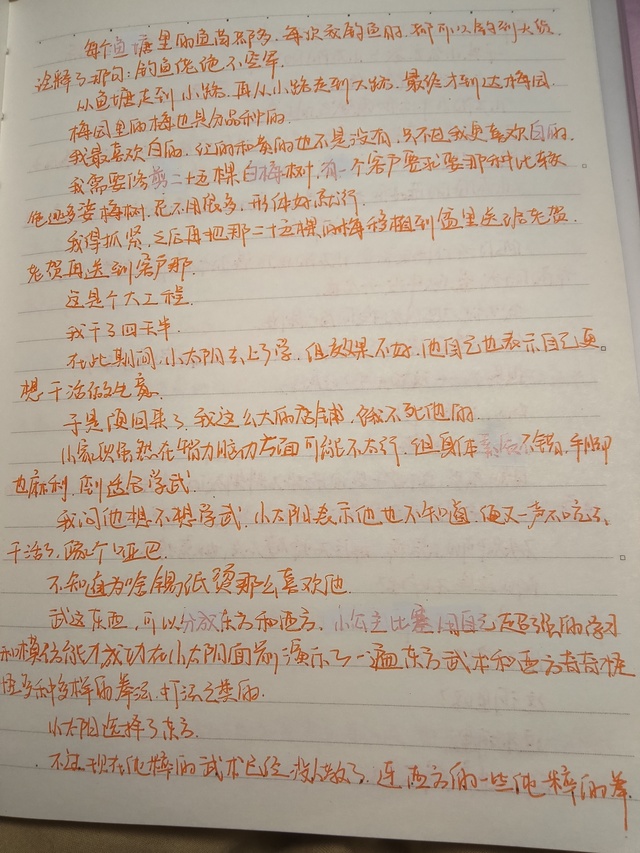 每个鱼塘里的鱼苗都多，每次我钓鱼时，都可以钓到大货，
诠释了那句：钓鱼佬绝不空军。
从鱼塘走到小路，再从小路走到大路，最终才到达梅园。
梅园里的梅也是分品种的。
我最喜欢白的，红的和黄的也不是没有，只不过我更喜欢白的。
我需要修剪二十五棵白梅树，有一个客户要求要那种比较
多姿梅树，花不用很多，形体好就行。
我得抓紧，之后再把那二十五棵的梅移植到盆里送给老贺，
老贺再送到客户那。
这是个大工程。
我干了四天半。
在此期间，小太阳去上了学，但效果不好，他自己也表示自己更
想干活做生意。
于是须回来了，我这么大的店铺，饿不死他的。
小家伙虽然在智力脑力方面可能不太行，但身体素质不错，手脚
也麻利，倒适合学武。
我问他想不想学武，小太阳表示他也不知道，便又一声不吭了，
干活了，跟个哑巴。
不知道为啥锡纸烫那么喜欢他。
武这东西，可以分成东方和西方，小公主比赛用自己超强的学习
和模仿能力成功在小太阳面前演示了一遍东方武术和西方奇奇怪
怪多种多样的拳法、打法之类的。
小太阳选择了东方。
不过现在纯粹的武术已经找人教了，连西方的一些纯粹的拳